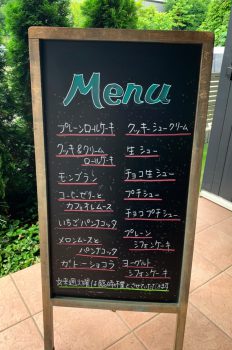 Menu
プレーンロールケーキ
クッキー&クリーム
ロールケーキ
モンブラン
コーヒーゼリーと
カフェオレムース
いちごパンナコッタ
メロンムースと
パンナコッタ
ガトーショコラ
クッキーシュークリーム
生シュー
チョコ生シュー
プチシュー
チョコプチシュー
プレーン
シフォンケーキ
ヨーグルト
シフォンケーキ
は臨時休業とさせていただきます